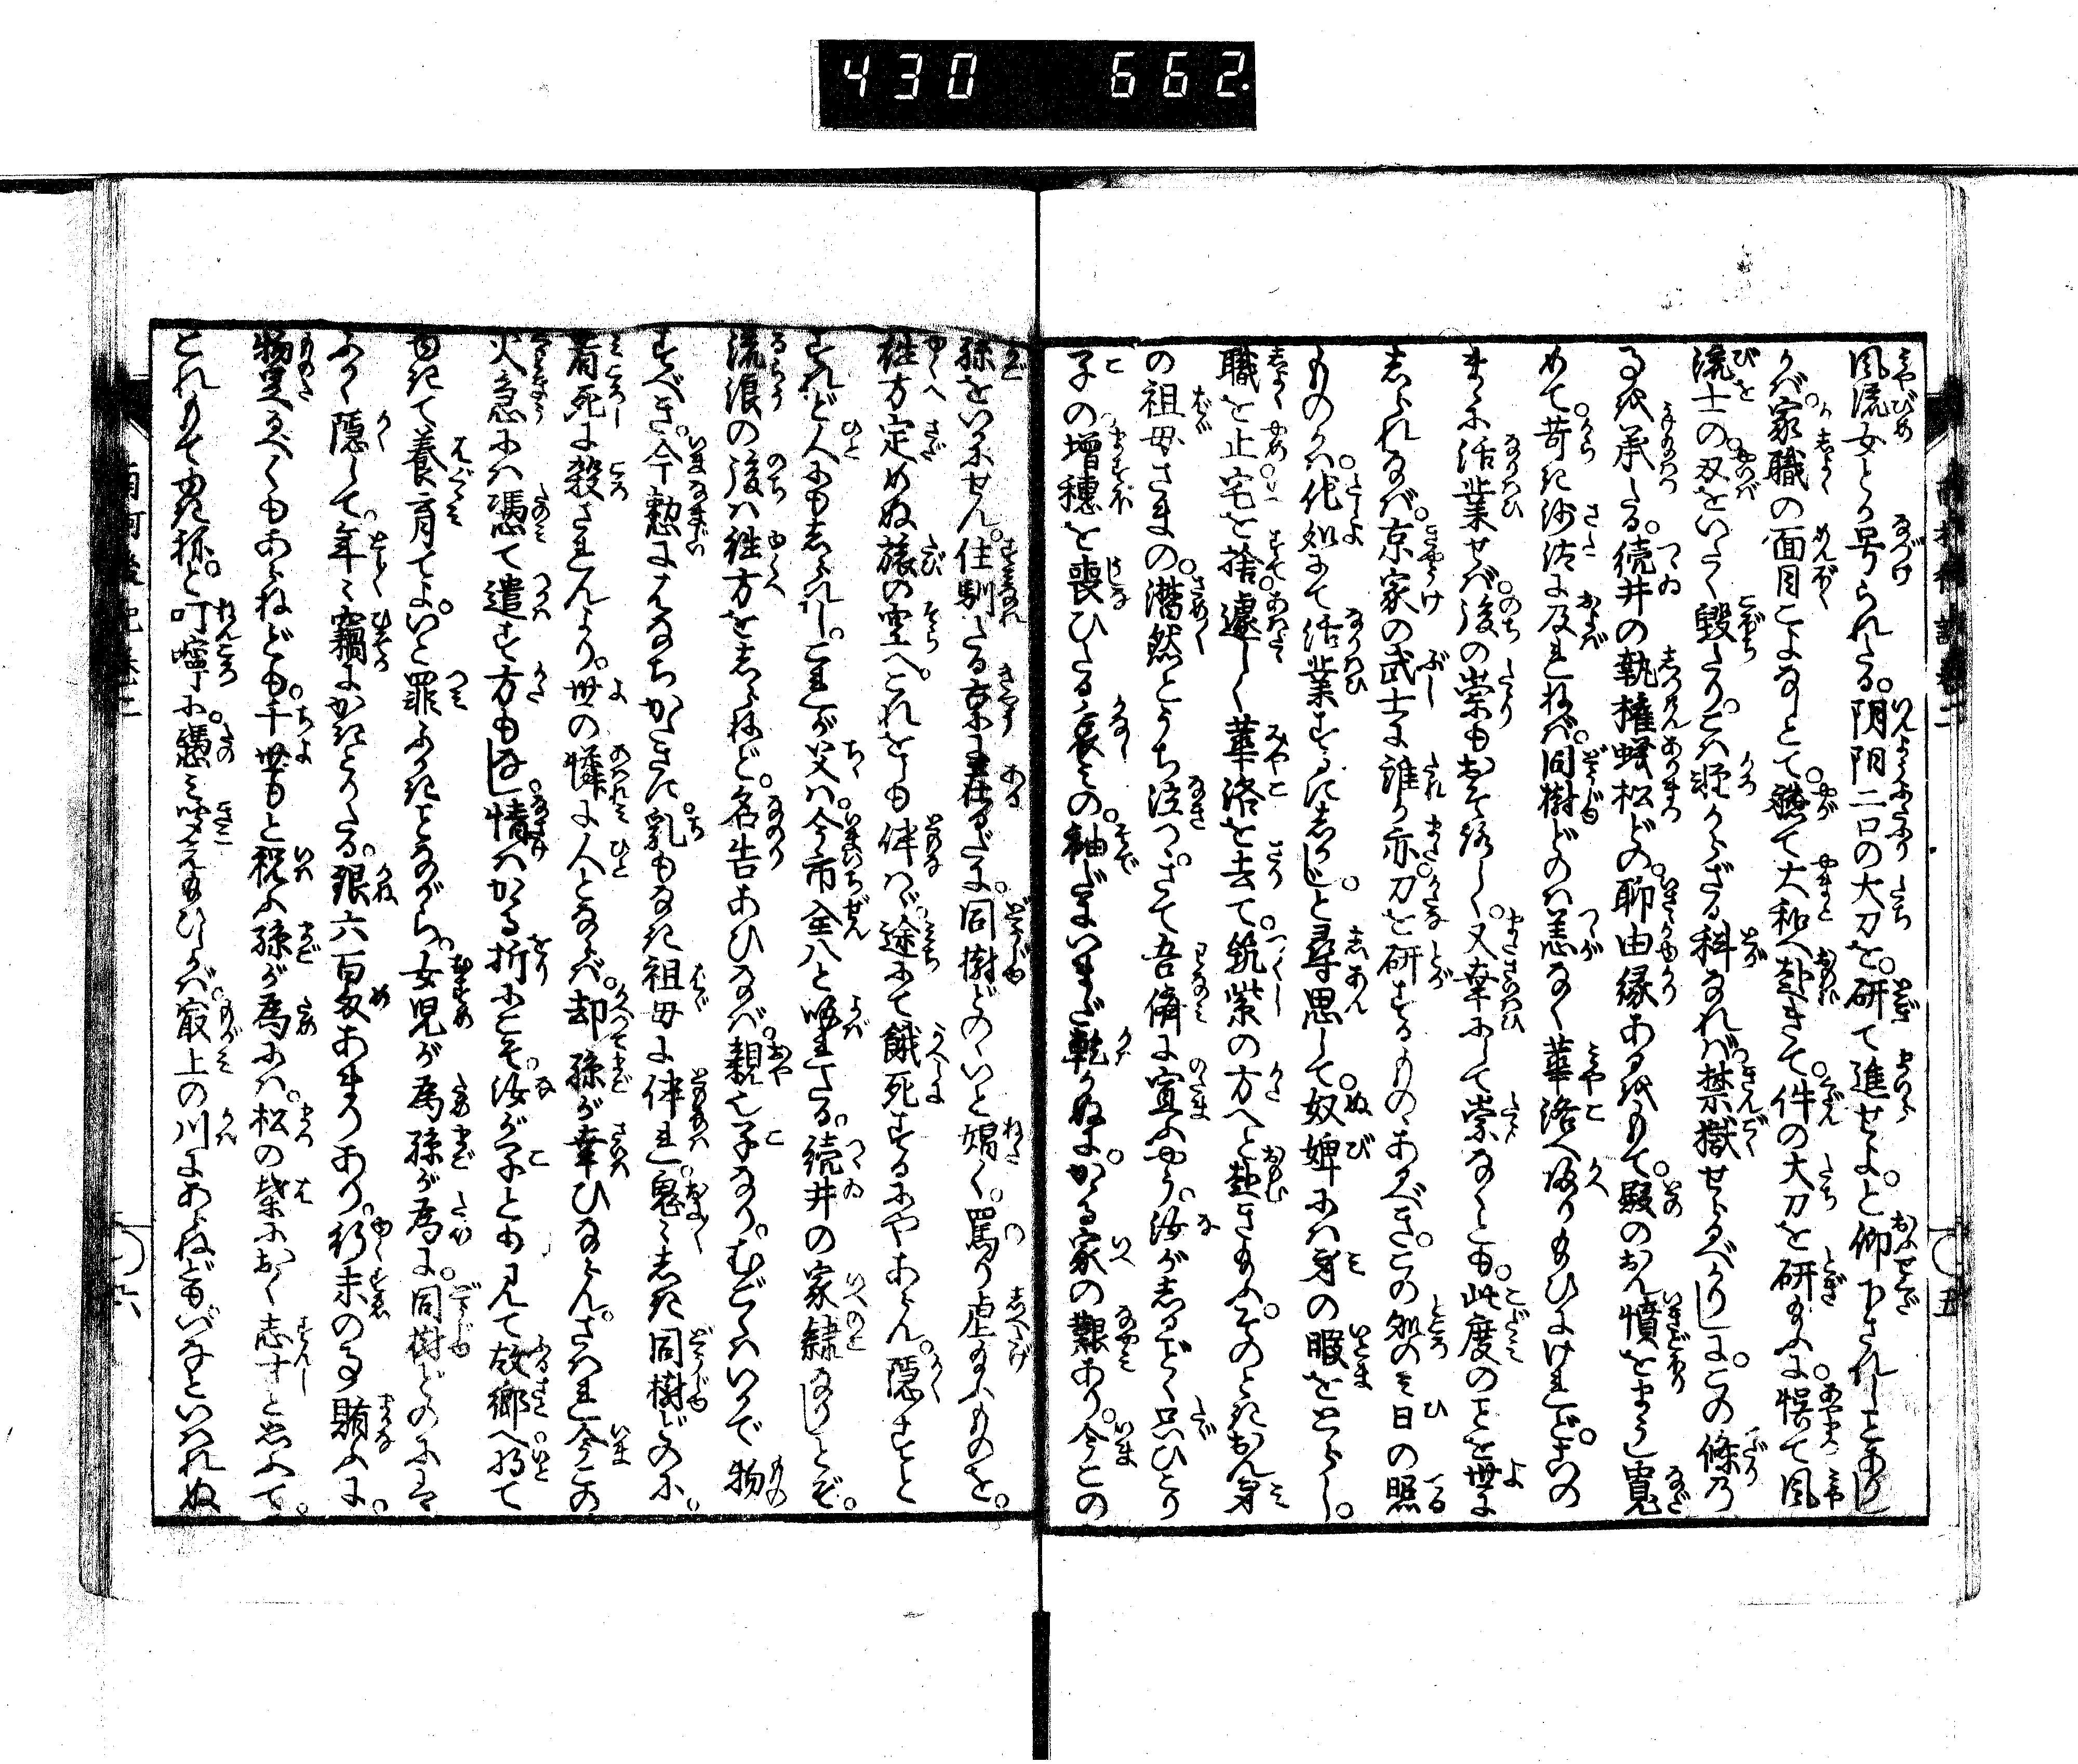 430 662
風流女とか号られたる。陰陽二口の大刀を。研て進せよ。と仰下されしことありし
かば。家職の面目こよなしとて。軈て大和へ赴きて。件の大刀を研給ふに。悞て風
流士の刃をいたく毀たり。こは軽からざる科なれば。禁獄せらるべかりしに。この條乃
事を承たる。続井の執權蟻松どの。聊由縁あるをもて。殿のおん憤をまうし寛
めて。苛き沙汰に及ばれねば。同樹どのは恙なく華洛へ返り給ひにけれど。この
まゝに活業せば。後の祟もおそろし。又幸にして祟なくとも。此度のことを世に
しられなば。京家の武士に誰か亦。刀を研するものゝあるべき。この処のミ日の照
ものかは。他処にて活業するにしかじ。と尋思して。奴婢には身の暇をとらし。
職を止。宅を捨。遽しく華洛を去て。筑紫の方へと赴き給ふ。そのときおん身
の祖母さまの。潸然とうち泣つ。さて吾儕に宣ふやう。汝がしるごとく只ひとり
子の。增穗を喪ひたる哀みの。袖だにいまだ乾かぬに。かゝる家の難あり。今この
孫をいかにせん。住馴たる京に在るだに。同樹どのゝいと媢く。罵り虐給ふものを。
往方定めぬ旅の空へ。これをしも伴はゞ。途にて餓死するにやあらん。隱すと
すれど人にもしられし。これが父は。今市全八と喚れたる。続井の家隷なりしとぞ。
流浪の後は往方をしらねど。名告あひなば。親也子なり。むごくはいかで物
すべき。今憖にはらちかきに。乳もなき祖母に伴れ。鬼々しき同樹どのに。
窘死に殺されんより。世の憐に人とならば。却孫が幸ひならん。さはれ今この
火急には。憑て遣す方もなし。情はかゝる折にこそ。汝が子とも見て故郷へ將て
ゆきて養育てよ。いと罪ふかきことながら。女児が為孫が為に。同樹どのにも
ふかく隱して。年々竊にかきとりたる。銀六百匁あまりあり。行末の事賄ふに。
物足るべくもあらねども。千世もと祝ふ孫が為には。松の葉におく志寸と思ふて。
これもてゆきね。と叮嚀に。憑ミ聞え給ひしかば。最上の川にあらねどもいなといはれぬ